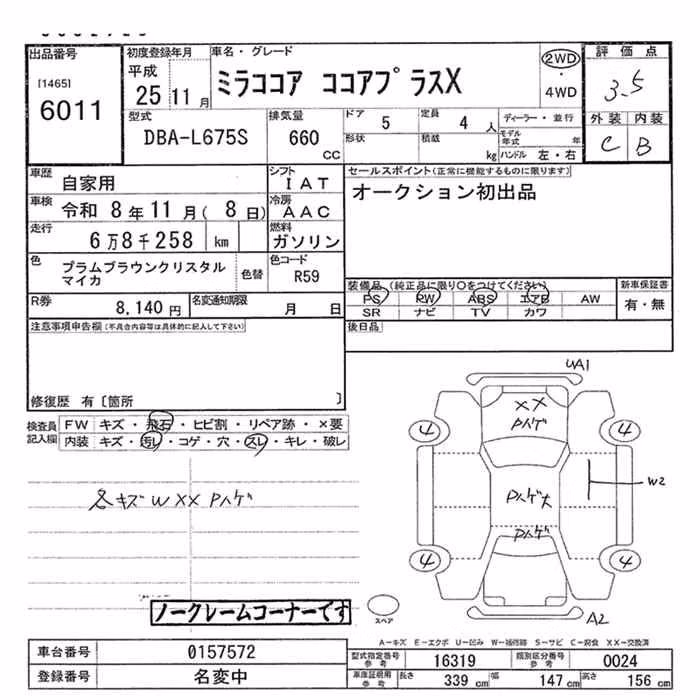 出品番号
[1465]
6011
初度登録年月
平成
25 11 月
車名・グレード
ミラココア ココアプラスX
2WD
・
4WD
評価点
3.5
外装 内装
C B
型式
DBA-L675S
排気量
660
CC
ドア
5
定員
4 人
形状
積載
kg
ディーラー・並行
モデル年式 年
ハンドル 左・右
車歴
自家用
シフト
IAT
車検
令和 8 年 11 月( 8 日)
冷房
AAC
走行
6 万 8 千 258 km
燃料
ガソリン
色
プラムブラウンクリスタル
マイカ
色替
色コード
R59
R券
8,140 円
名変通知期限
月 日
セールスポイント(正常に機能するものに限ります)
オークション初出品
装備品(純正品に限り○をつけてください)
PS PW ABS エアB AW
SR ナビ TV カワ
新車保証書
有・無
後日品
注意事項申告欄(不具合内容等は具体的に記入して下さい)
修復歴 有〔箇所 〕
検査員
記入欄
FW キズ・飛石・ヒビ割・リペア跡・×要
内装 キズ・汚レ・コゲ・穴・スレ・キレ・破レ
キズ W XX Pハゲ
ノークレームコーナーです
UA1
XX
Pハゲ
4
4
Pハゲ大
W2
Pハゲ
4
4
A2
スペア
A-キズ E-エクボ U-凹み W-補修跡 S-サビ C-腐食 XX-交換済
車台番号
0157572
登録番号
名変中
型式指定番号
参考
16319
類別区分番号
参考
0024
車庫証明用
参考
長さ 339 cm 幅 147 cm 高さ 156 cm